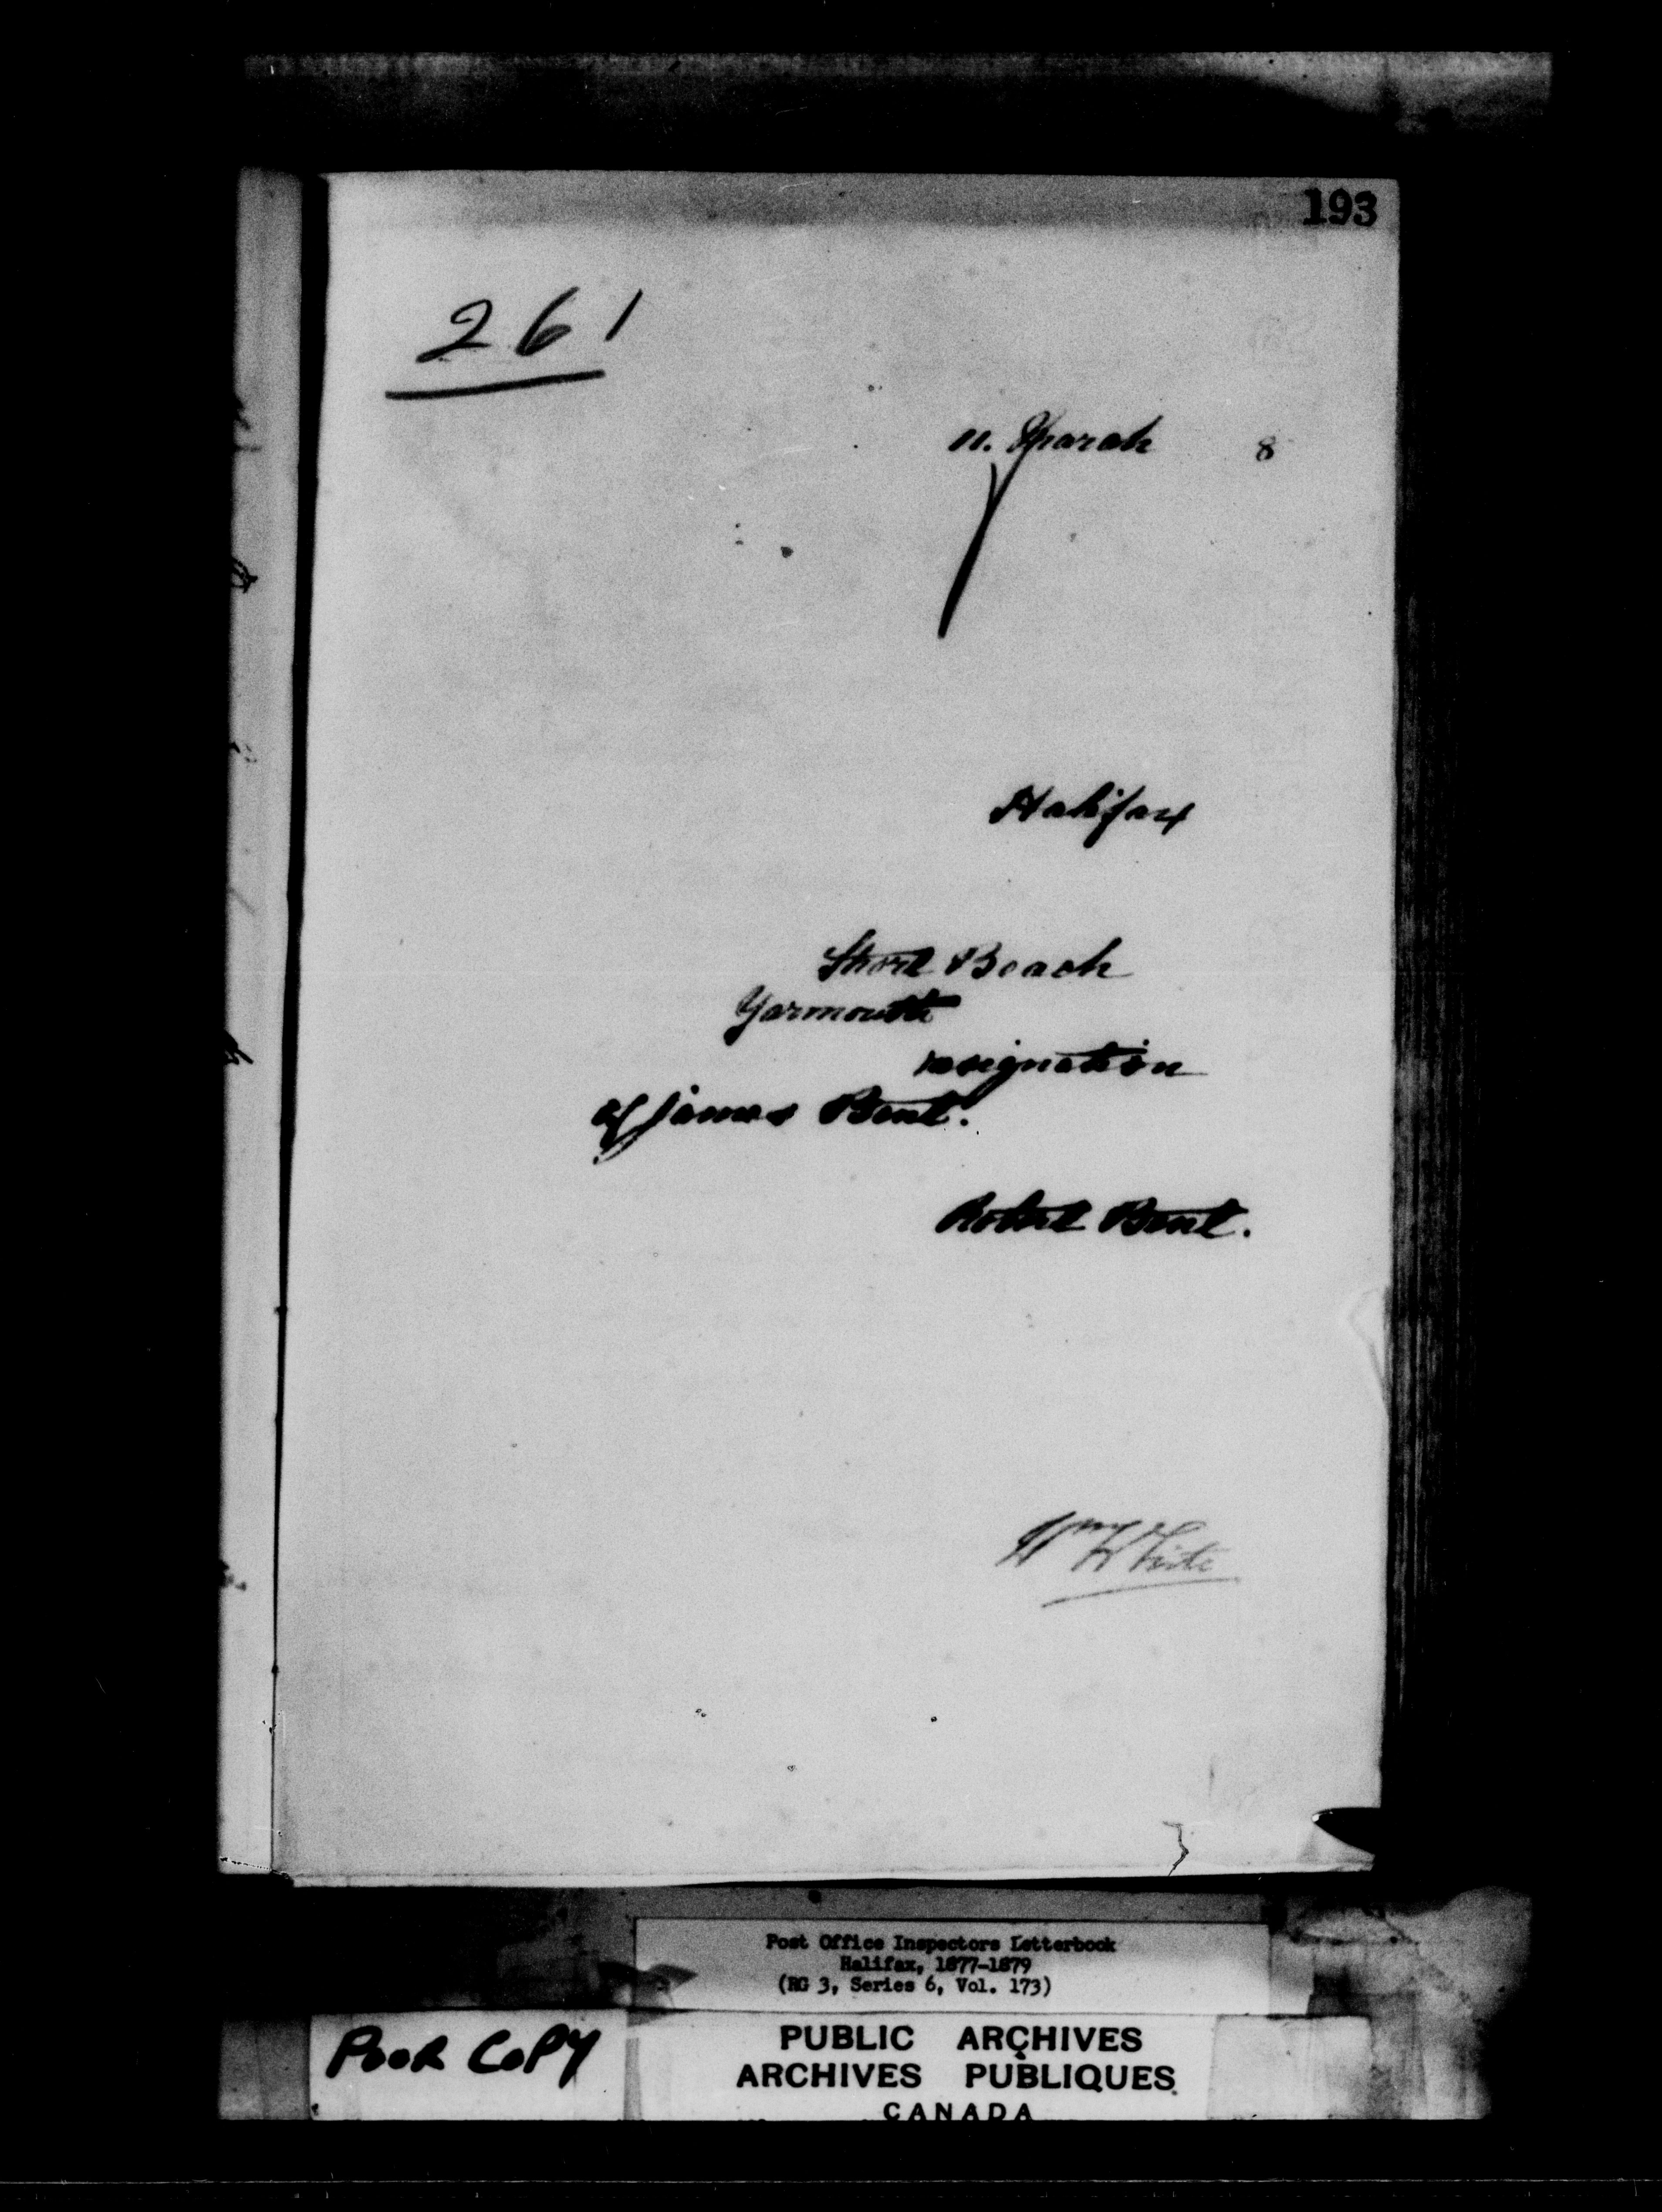 193
261
11. March 8
Halifax
Short Beach
Yarmouth
resignation
of James Bent.
Robert Bent.
Wm White
Post Office Inspectors Letterbook
Halifax, 1877-1879
(RG 3, Series 6, Vol. 173)
POOR COPY
PUBLIC ARCHIVES
ARCHIVES PUBLIQUES
CANADA